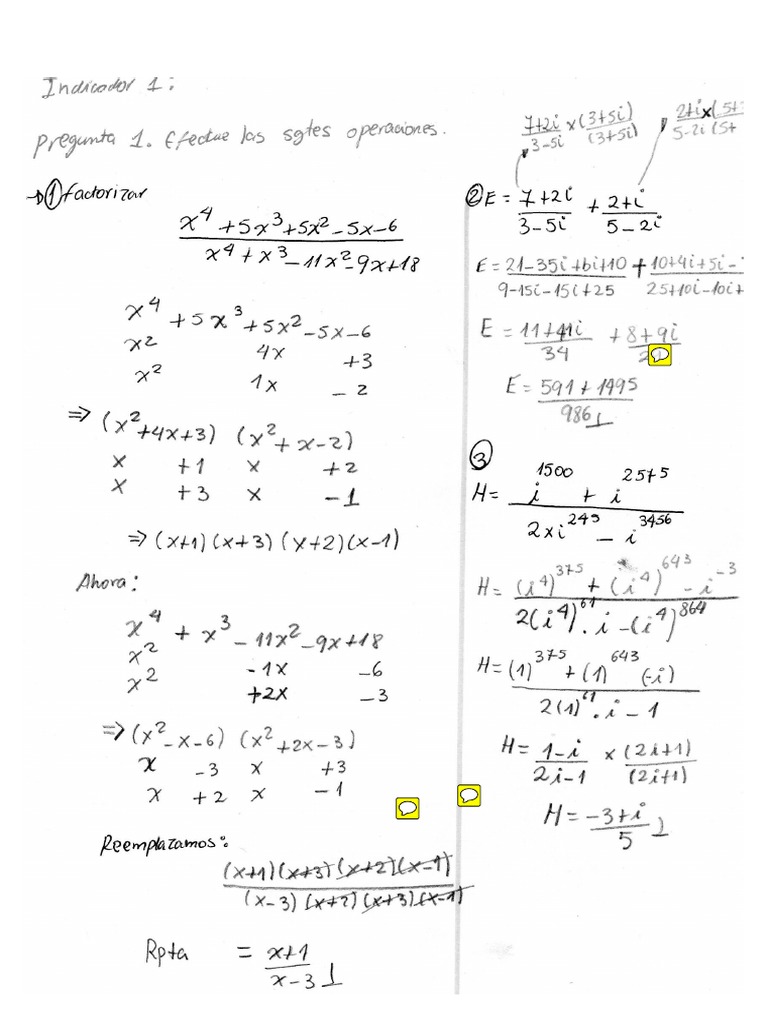 Indicador 1:
Pregunta 1. Efectue las sgtes operaciones.
→ ① factorizar
x⁴ + 5x³ + 5x² - 5x - 6
x⁴ + x³ - 11x² - 9x + 18
x⁴ + 5x³ + 5x² - 5x - 6
x² 4x +3
x² 1x -2
⇒ (x² + 4x + 3) (x² + x - 2)
x +1 x +2
x +3 x -1
⇒ (x+1)(x+3)(x+2)(x-1)
Ahora:
x⁴ + x³ - 11x² - 9x + 18
x² -1x -6
x² +2x -3
⇒ (x² - x - 6) (x² + 2x - 3)
x -3 x +3
x +2 x -1
Reemplazamos:
(x+1)(x+3)(x+2)(x-1)
(x-3)(x+2)(x+3)(x-1)
Rpta = x+1
x-3
7+2i x (3+5i) 2+i x (5+
3-5i (3+5i) 5-2i (5+
② E = 7+2i + 2+i
3-5i 5-2i
E = 21-35i+6i+10 + 10+4i+5i-
9-15i-15i+25 25+10i-10i+
E = 11+41i + 8+9i
34
E = 591+1495
986
③
H = i¹⁵⁰⁰ + i²⁵⁷⁵
2xi²⁴⁵ - i³⁴⁵⁶
H = (i⁴)³⁷⁵ + (i⁴)⁶⁴³ - i⁻³
2(i⁴)⁶¹ . i - (i⁴)⁸⁶⁴
H = (1)³⁷⁵ + (1)⁶⁴³ (-i)
2(1)⁶¹ . i - 1
H = 1-i x (2i+1)
2i-1 (2i+1)
H = -3+i
5